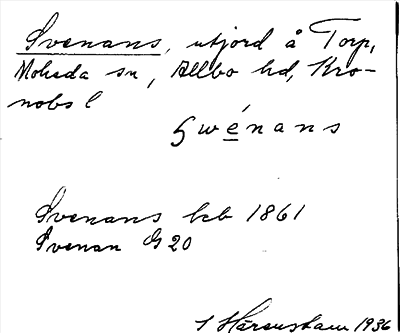 Svenans, utjord å Torp,
Moheda sn, Allbo hd, Kro-
nobs l
Swénans
Svenans hcb 1861
Svenan G 20
Härenstam 1936